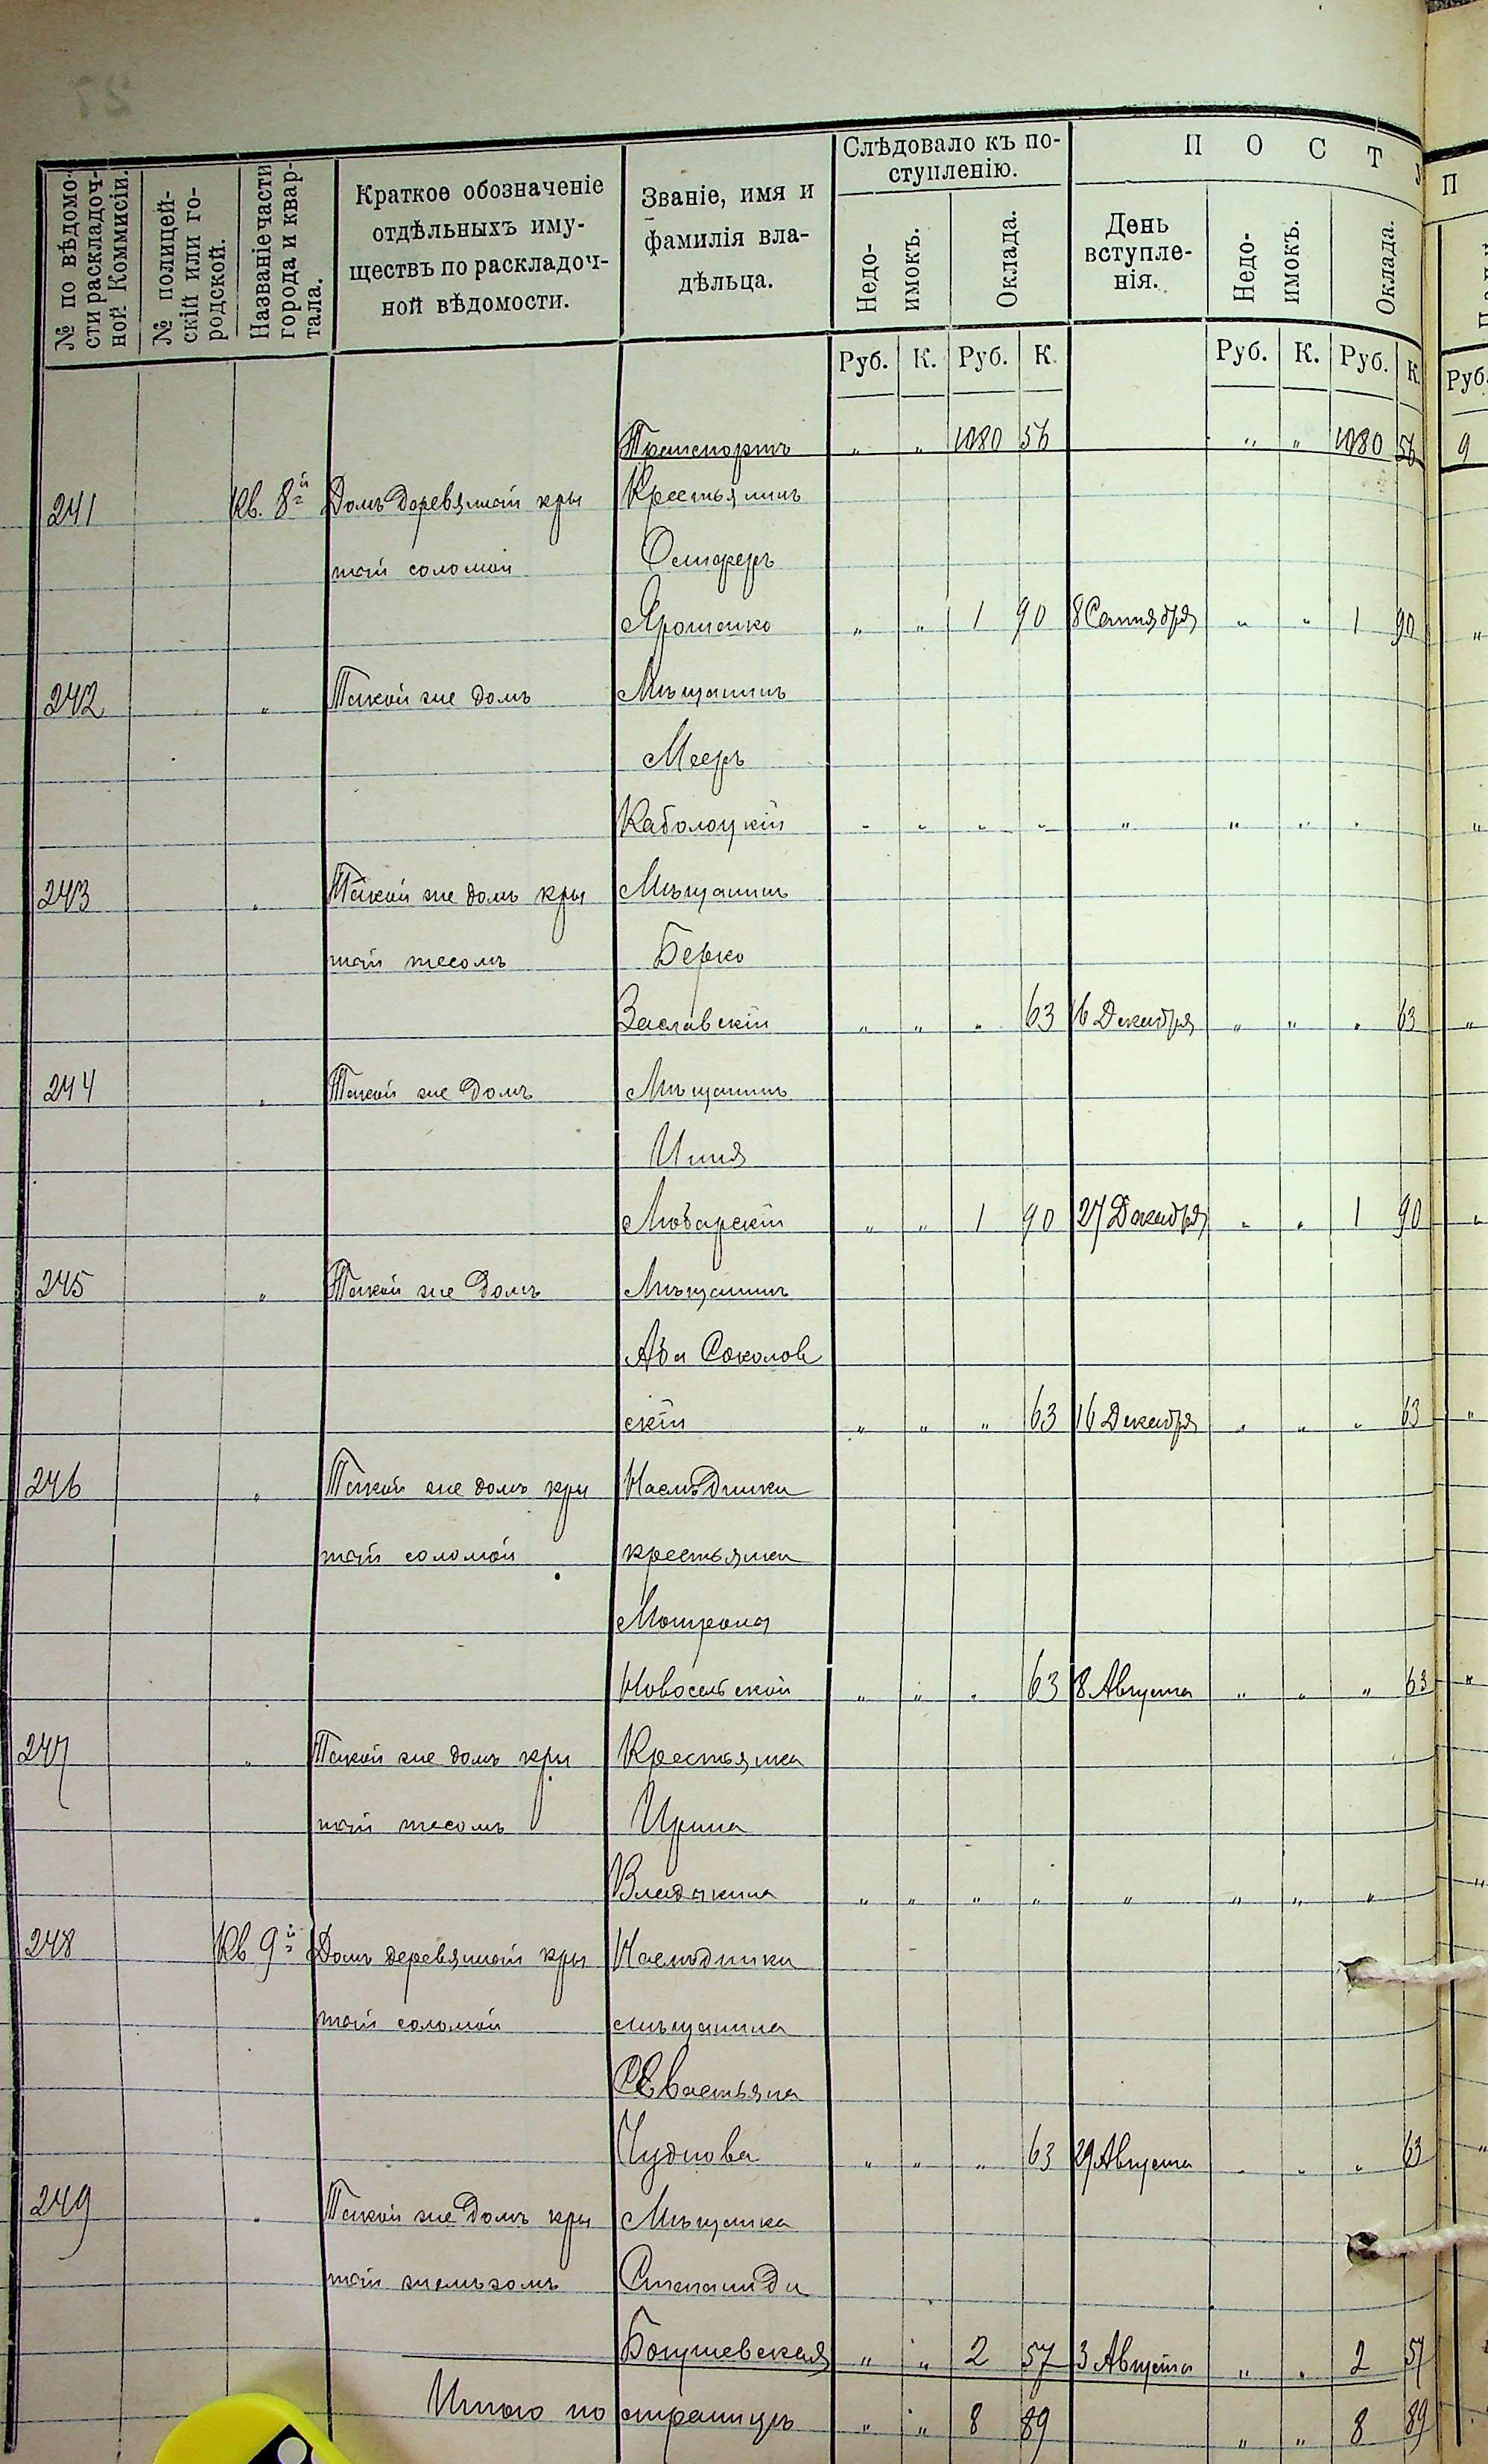 № по вѣдомо-
сти раскладоч-
ной Коммисіи.
№ полицей-
скій или го-
родской.
Названіе части
города и квар-
тала.
Краткое обозначеніе
отдѣльныхъ иму-
ществъ по раскладоч-
ной вѣдомости.
Званіе, имя и
фамилія вла-
дѣльца.
Слѣдовало къ по-
ступленію.
Недо-
имокъ.
Оклада.
П О С Т
День
вступле-
нія.
Недо-
имокъ.
Оклада.
Руб. К. Руб. К. Руб. К. Руб. К
Руб.
Транспортъ „ „ 1080 56 „ „ 1080 56
241 Кв. 8й Домъ деревяной кры Крестьянинъ
той соломой Онифрѣ
Ярошенко „ „ 1 90 8 Сентября „ „ 1 90
242 „ Такой же домъ Мѣщанинъ
Мееръ
Каболоцкій „ „ „ „ „ „ „ „
243 „ Такой же домъ кры Мѣщанинъ
той тесомъ Берко
Заславскій „ „ „ 63 16 Декабря „ „ „ 63
244 „ Такой же домъ Мѣщанинъ
Любарскій „ „ 1 90 27 Декабря „ „ 1 90
245 „ Такой же домъ Мѣщанинъ
Аба Соколов
скій „ „ „ 63 16 Декабря „ „ „ 63
246 „ Такой же домъ кры Наслѣдники
той соломой крестьянки
Мотрона
Новосельской „ „ „ 63 8 Августа „ „ „ 63
247 „ Такой же домъ кры Крестьянка
той тесомъ Ирина
Владыкина „ „ „ „ „ „ „ „
248 Кв 9й Домъ деревяной кры Наслѣдники
той соломой мѣщанина
Севастьяна
Чуднова „ „ „ 63 29 Августа „ „ „ 63
249 „ Такой же Домъ кры Мѣщанка
той желѣзомъ Степанида
Богушевская „ „ 2 57 3 Августа „ „ 2 57
Итого по страницѣ „ „ 8 89 „ „ 8 89